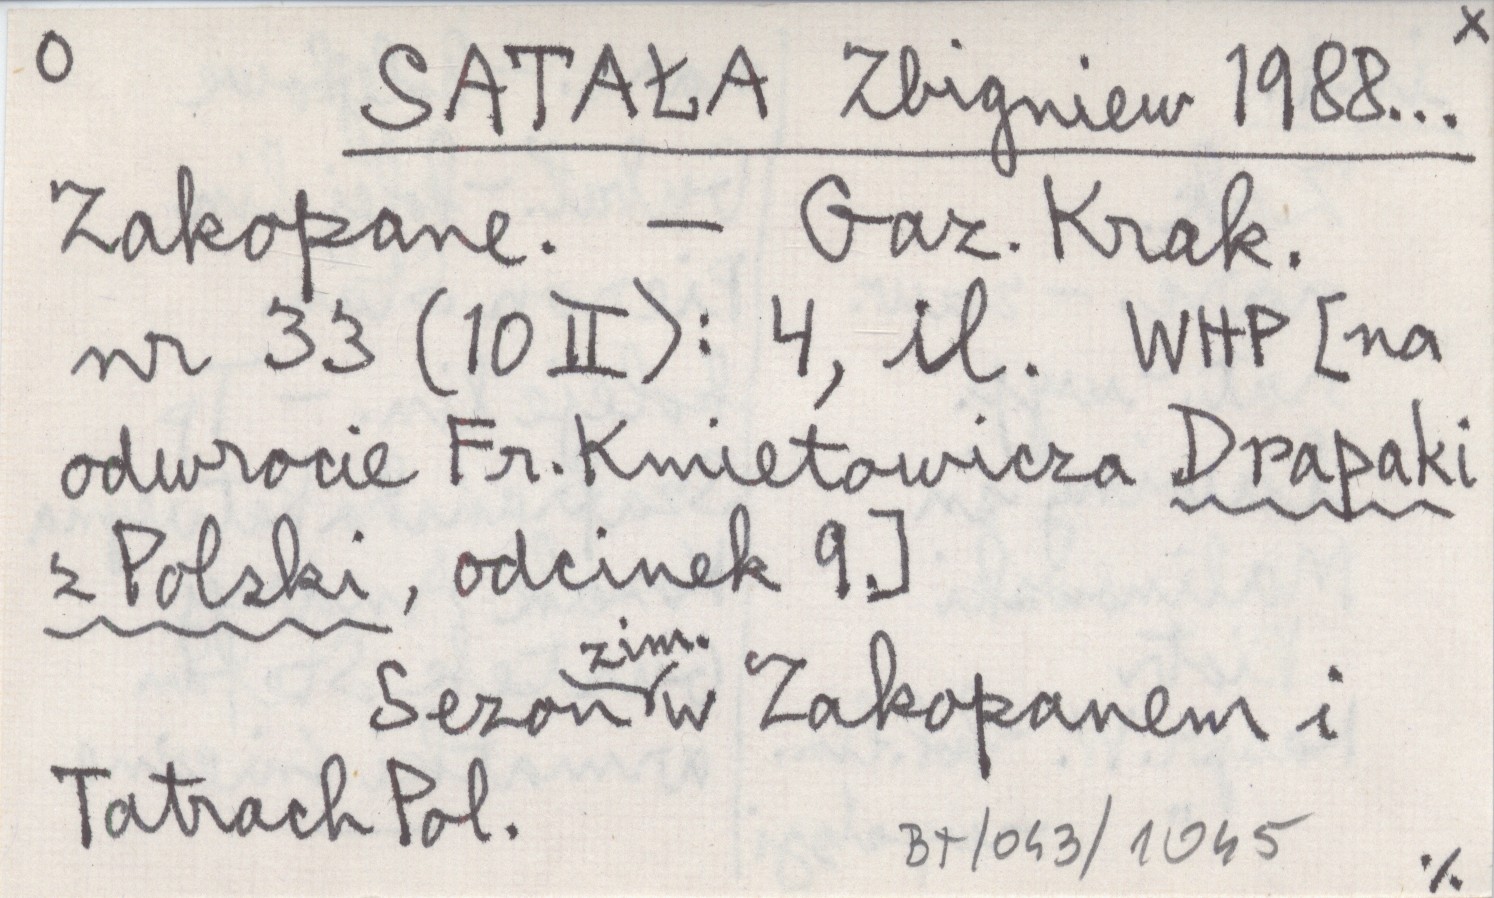 O x
SATAŁA Zbigniew 1988...
Zakopane. — Gaz. Krak.
nr 33 (10 II): 4, il. WHP [na
odwrocie Fr. Kmietowicza Drapaki
z Polski, odcinek 9.]
zim.
Sezon w Zakopanem i
Tatrach Pol.
BT/043/1045
./.